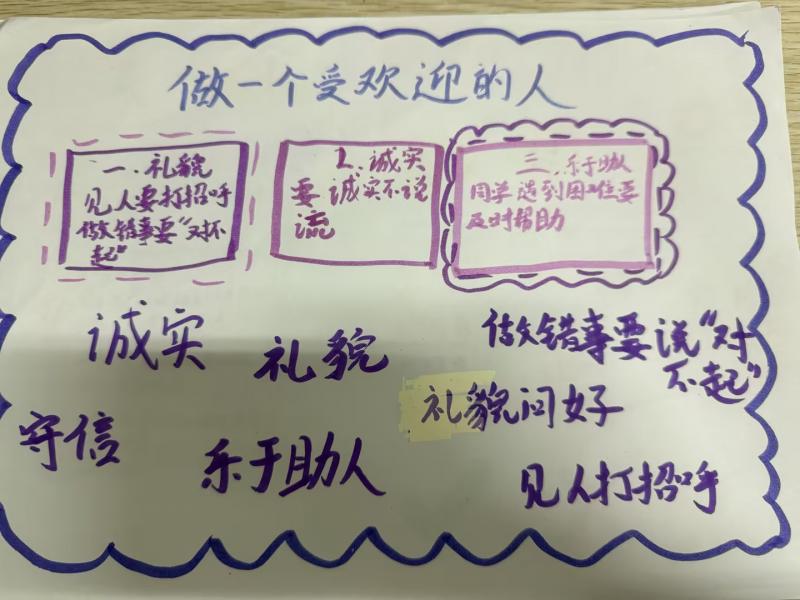 做一个受欢迎的人
一、礼貌
见人要打招呼
做错事要“对不
起”
2、诚实
要诚实不说
流
三、乐于助人
同学遇到困难要
及时帮助
诚实
礼貌
做错事要说“对
不起”
礼貌问好
守信
乐于助人
见人打招呼